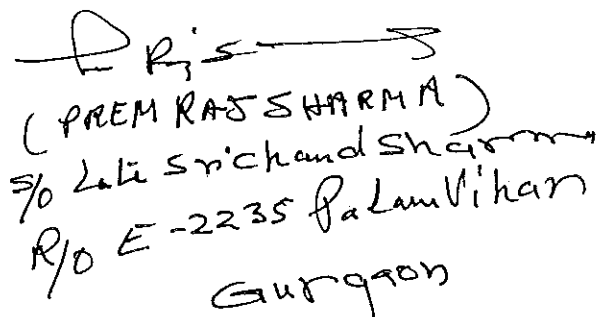 (PREM RAJ SHARMA)
S/O Late Srichand Sharma
R/O E-2235 Palam Vihar
Gurgaon